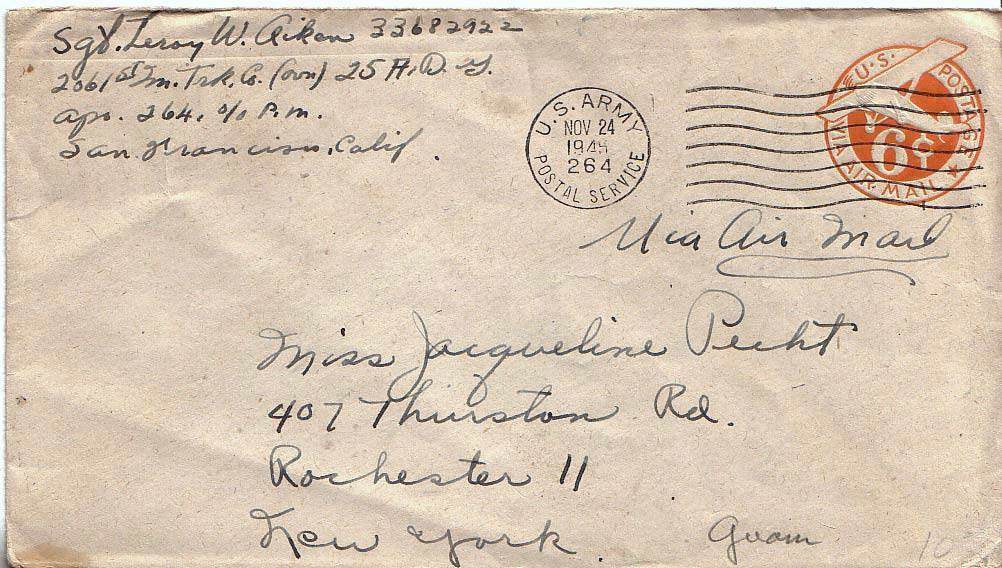 Sgt. Leroy W. Aiken 33682922
2061st Q.m. Trk. Co. (ovn) 25 A. D. G.
apo. 264, c/o P.m.
San Francisco, Calif.
U.S. ARMY
NOV 24
1945
264
POSTAL SERVICE
U.S. POSTAGE
6¢
VIA AIR MAIL
Via Air Mail
Miss Jacqueline Pecht
407 Thurston Rd.
Rochester 11
New York.
Guam
10